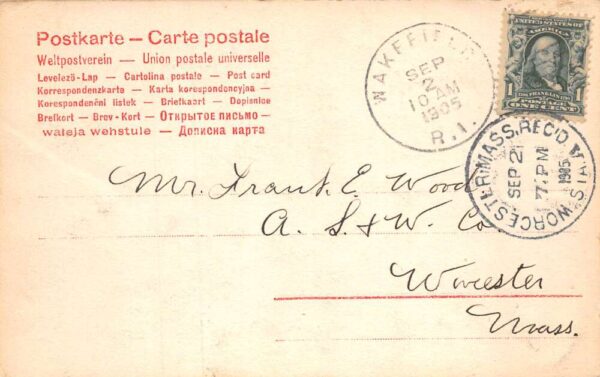 Postkarte — Carte postale
Weltpostverein — Union postale universelle
Levelező-Lap — Cartolina postale — Post card
Korrespondenzkarte — Karta korespondencyjna —
Korespondenční lístek — Briefkaart — Dopisnice
Brefkort — Brev-Kort — Открытое письмо —
waleja wehstule — Дописна карта
WAKEFIELD
SEP
2
10 AM
1905
R.I.
UNITED STATES OF
AMERICA
FRANKLIN
1 POSTAGE 1
ONE CENT
WORCESTER, MASS. REC'D.
SEP 2
7 PM
1905
STA.
Mr. Frank E. Wood
A. S. & W. Co.
Worcester
Mass.